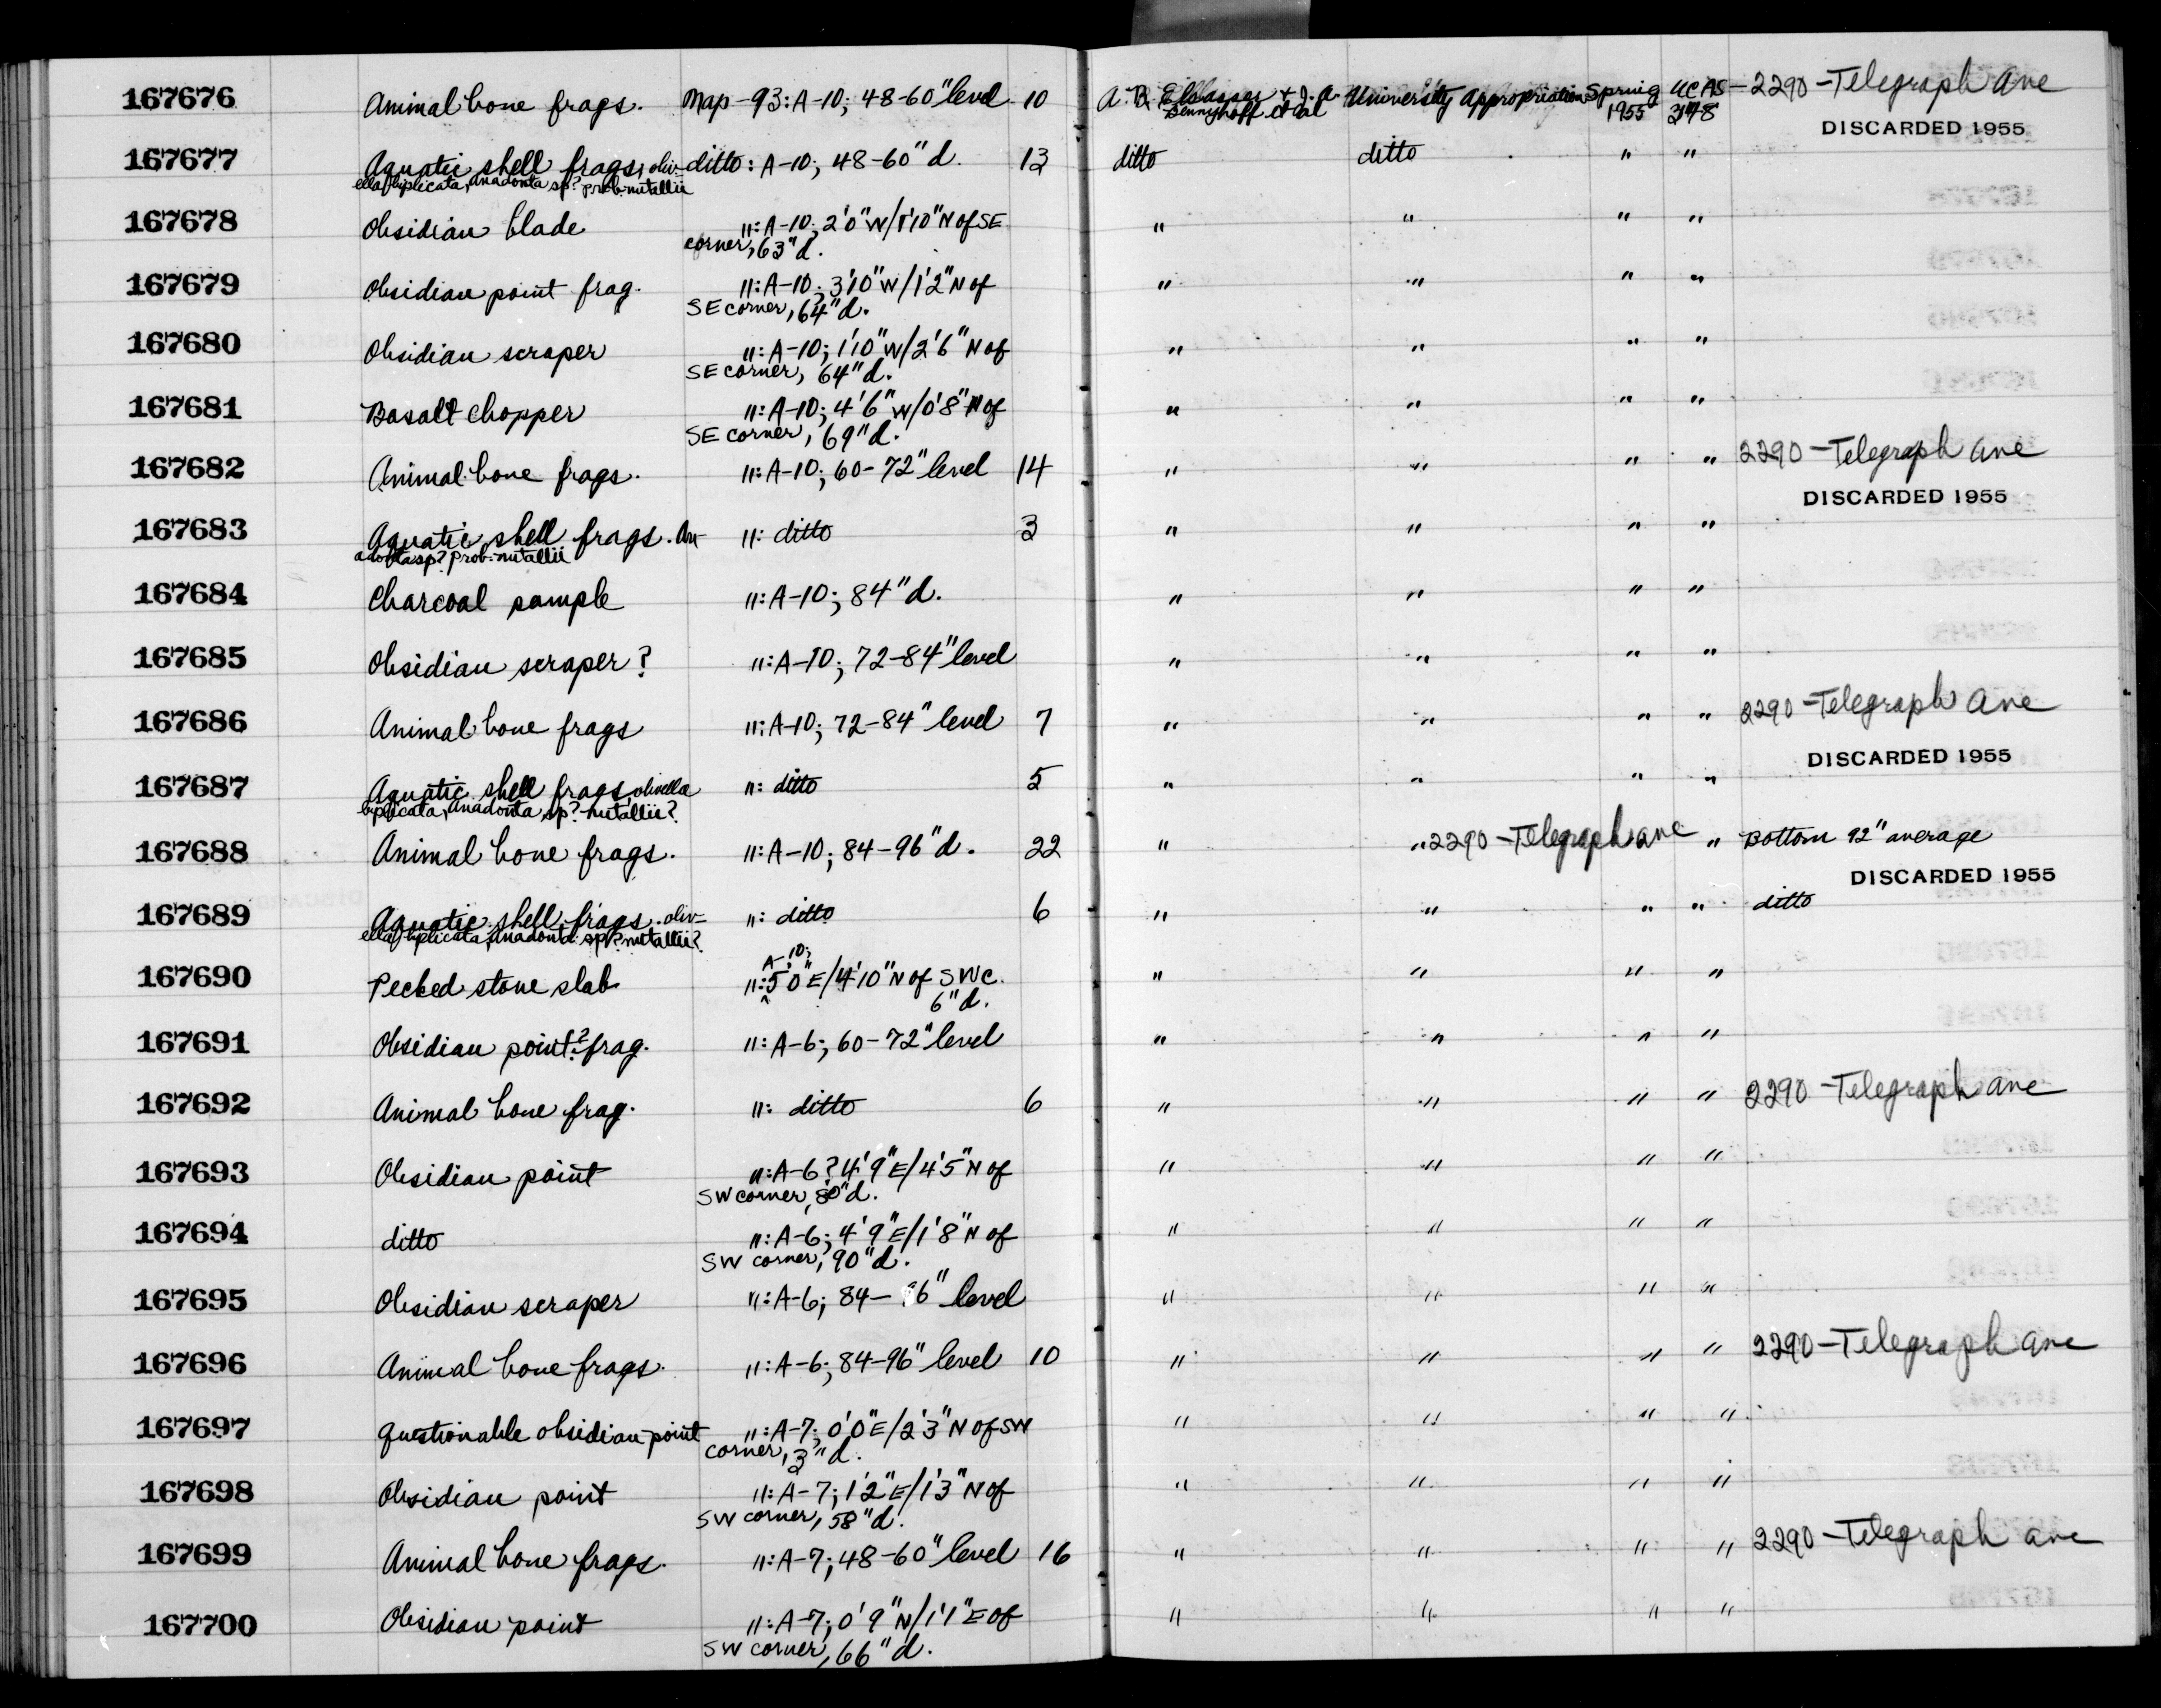 167676 Animal bone frags. Map-93: A-10; 48-60" level 10 A. B. Elsasser + J. A. University Appropriation Spring UCAS- 2290-Telegraph Ave
Bennyhoff et al 1955 348
DISCARDED 1955
167677 Aquatic shell frags, oliv- ditto: A-10; 48-60" d. 13 ditto ditto " "
ella biplicata, Anadonta sp? prob. nutallii
167678 Obsidian blade ": A-10; 2'0" W/1'10" N of SE " " " "
corner, 63" d.
167679 Obsidian point frag. ": A-10; 3'10" W/1'2" N of " " " "
SE corner, 64" d.
167680 Obsidian scraper ": A-10; 1'10" W/2'6" N of " " " "
SE corner, 64" d.
167681 Basalt chopper ": A-10; 4'6" W/0'8" N of " " " "
SE corner, 69" d.
167682 Animal bone frags. ": A-10; 60-72" level 14 " " " " 2290-Telegraph Ave
DISCARDED 1955
167683 Aquatic shell frags. An- ": ditto 3 " " " "
adonta sp? prob. nutallii
167684 Charcoal sample ": A-10; 84" d. " " " "
167685 Obsidian scraper? ": A-10; 72-84" level " " " "
167686 Animal bone frags ": A-10; 72-84" level 7 " " " " 2290-Telegraph Ave
DISCARDED 1955
167687 Aquatic shell frags, olivella ": ditto 5 " " " "
biplicata, Anadonta sp? nutallii?
167688 Animal bone frags. ": A-10; 84-96" d. 22 " " 2290-Telegraph ave " Bottom 92" average
DISCARDED 1955
167689 Aquatic shell frags. oliv- ": ditto 6 " " " " ditto
ella biplicata, Anadonta sp? nutallii?
A-10;
167690 Pecked stone slab ": 5'0" E/4'10" N of SWC. " " " "
6" d.
167691 Obsidian point? frag. ": A-6; 60-72" level " " " "
167692 Animal bone frag. ": ditto 6 " " " " 2290-Telegraph ave
167693 Obsidian point ": A-6? 4'9" E/4'5" N of " " " "
SW corner, 80" d.
167694 ditto ": A-6; 4'9" E/1'8" N of " " " "
SW corner, 90" d.
167695 Obsidian scraper ": A-6; 84-96" level " " " "
167696 Animal bone frags. ": A-6; 84-96" level 10 " " " " 2290-Telegraph ave
167697 Questionable obsidian point ": A-7; 0'0" E/2'3" N of SW " " " "
corner, 3" d.
167698 Obsidian point ": A-7; 1'2" E/1'3" N of " " " "
SW corner, 58" d.
167699 Animal bone frags. ": A-7; 48-60" level 16 " " " " 2290-Telegraph ave
167700 Obsidian point ": A-7; 0'9" N/1'1" E of " " " "
SW corner, 66" d.